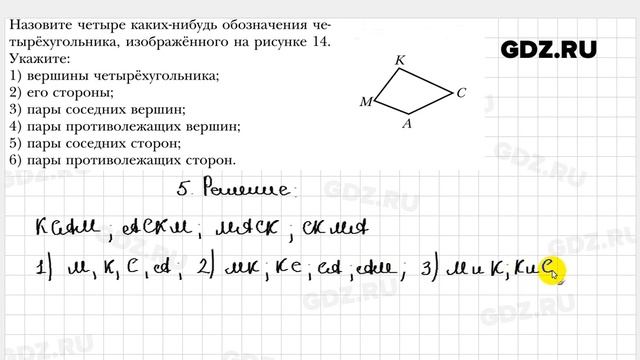 Назовите четыре каких-нибудь обозначения че-
тырёхугольника, изображённого на рисунке 14.
Укажите:
1) вершины четырёхугольника;
2) его стороны;
3) пары соседних вершин;
4) пары противолежащих вершин;
5) пары соседних сторон;
6) пары противолежащих сторон.
K
M
C
A
GDZ.RU
5. Решение:
КСАМ; АСКМ; МАСК; СКМА
1) М, К, С, А; 2) МК; КС; СА; АМ; 3) М и К; К и С
GDZ.RU
GDZ.RU
GDZ.RU
GDZ.RU
GDZ.RU
GDZ.RU